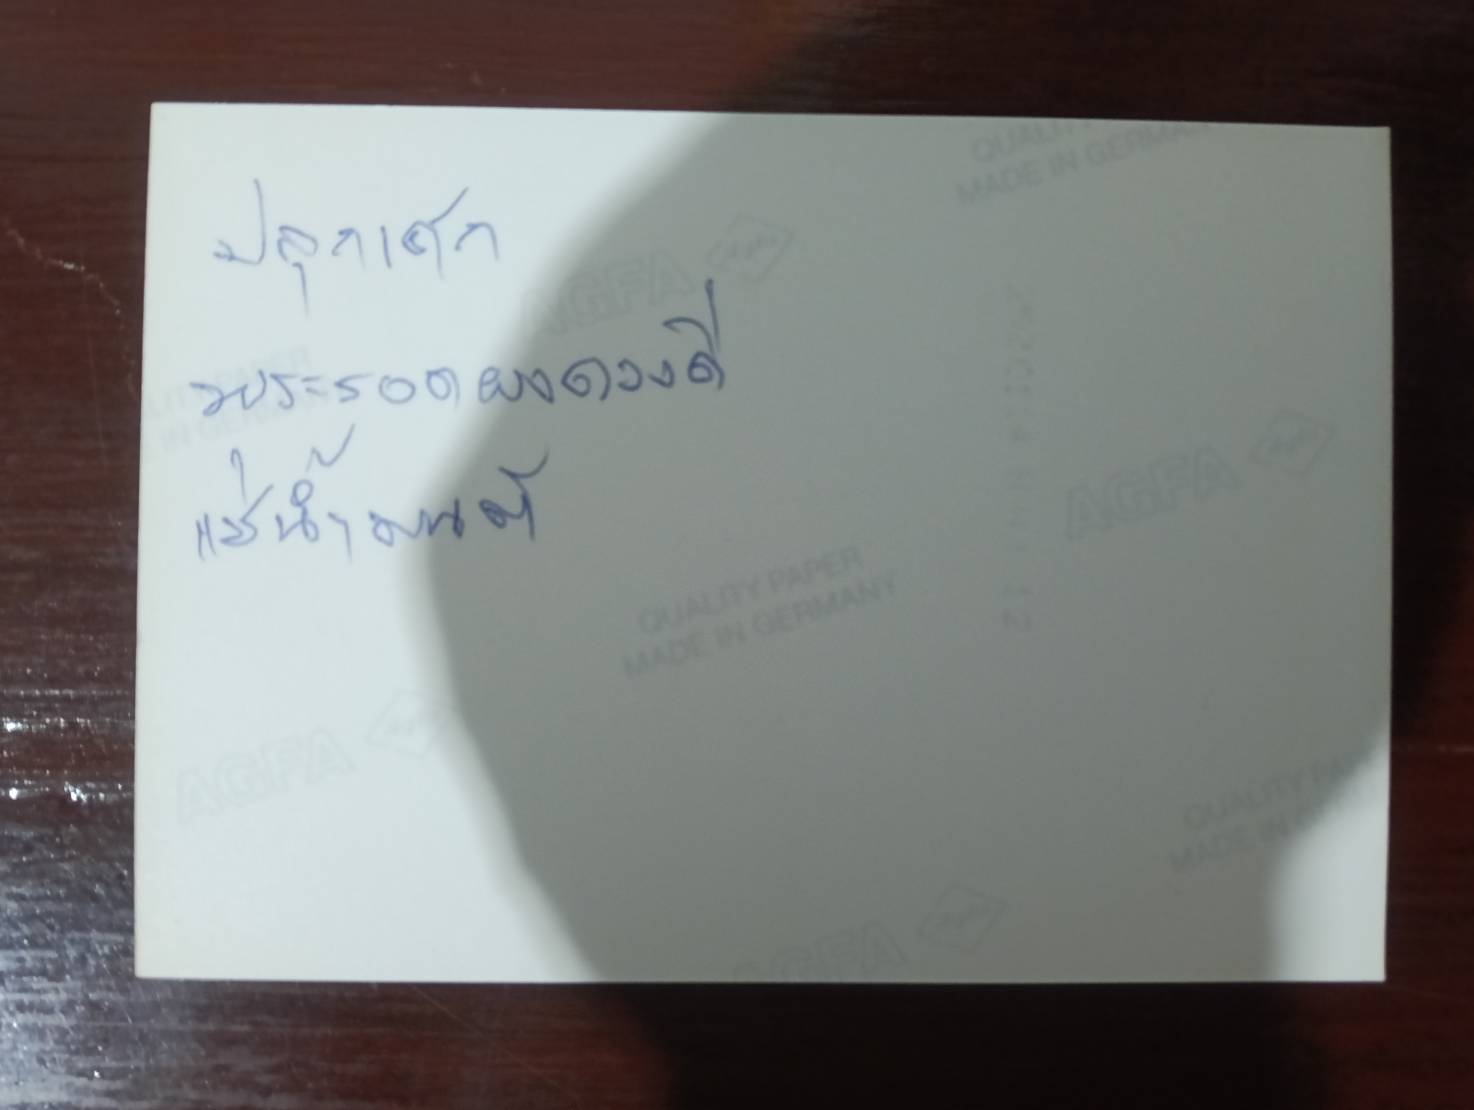 ปลุกเศก
พระรอดผงดวงดี
แช่น้ำมนต์
QUALITY
MADE IN GERMANY
AGFA
AGFA
QUALITY PAPER
MADE IN GERMANY
AGFA
QUALITY PAPER
MADE IN
AGFA